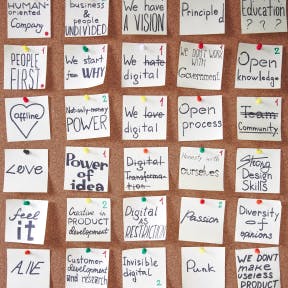 HUMAN-
oriented
Company.
business
& people
UNDIVIDED
We have
A VISION
Principled
Education
? ? ?
PEOPLE
FIRST.
1
We start
for WHY
We hate
digital
1
WE DON'T WORK
WITH
Government
1
Open
knowledge
2
offline
Not only money
POWER
2
We love
digital
1
Open
process
Team
Community
2
Love
Power of
idea
1
Digital
Transforma-
tion
1
Honesty with
ourselves
1
Strong
Design
Skills
feel
it
Creative in
PRODUCT
development
2
Digital
AS
DISTRICTION
1
Passion
Diversity
of
opinions
ALIVE
Customer
development
and research
2
Invisible
digital
2
Punk
WE DON'T
make
useless
PRODUCT